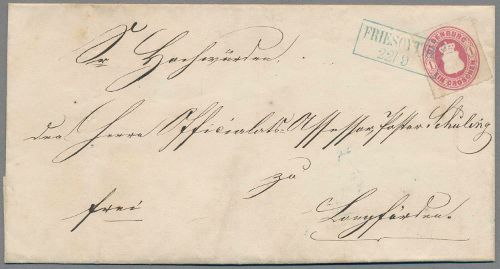 FRIESOYT
22/9
OLDENBURG
EIN GROSCHEN
Sr Hochwürden
dem Herrn Officialats-Assessor, Pastor Schüling
zu
frei
Langförden